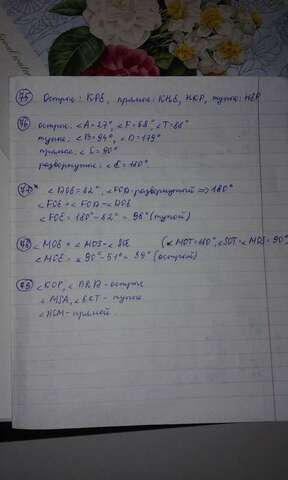 75 Острые: КРЕ, прямые: КНЕ, НКР, тупые: НЕР
76 острые: ∠A=27°, ∠F=68° ∠T=86°
тупые: ∠B=94°, ∠D=179°
прямые: ∠C=90°
развернутые: ∠E=180°
77* ∠DOE=82°, ∠FOD-развернутый ⇒ 180°
∠FOE = ∠FOD-∠DOE
∠FOE=180°-82°= 98° (тупой)
78 ∠MOE = ∠MOS-∠SOE (∠MOT=180°, ∠SOT=∠MOS=90°
∠MOE = ∠90°-51°= 39° (острый)
79 ∠KOP, - острые
∠MSA, - тупые
- прямой